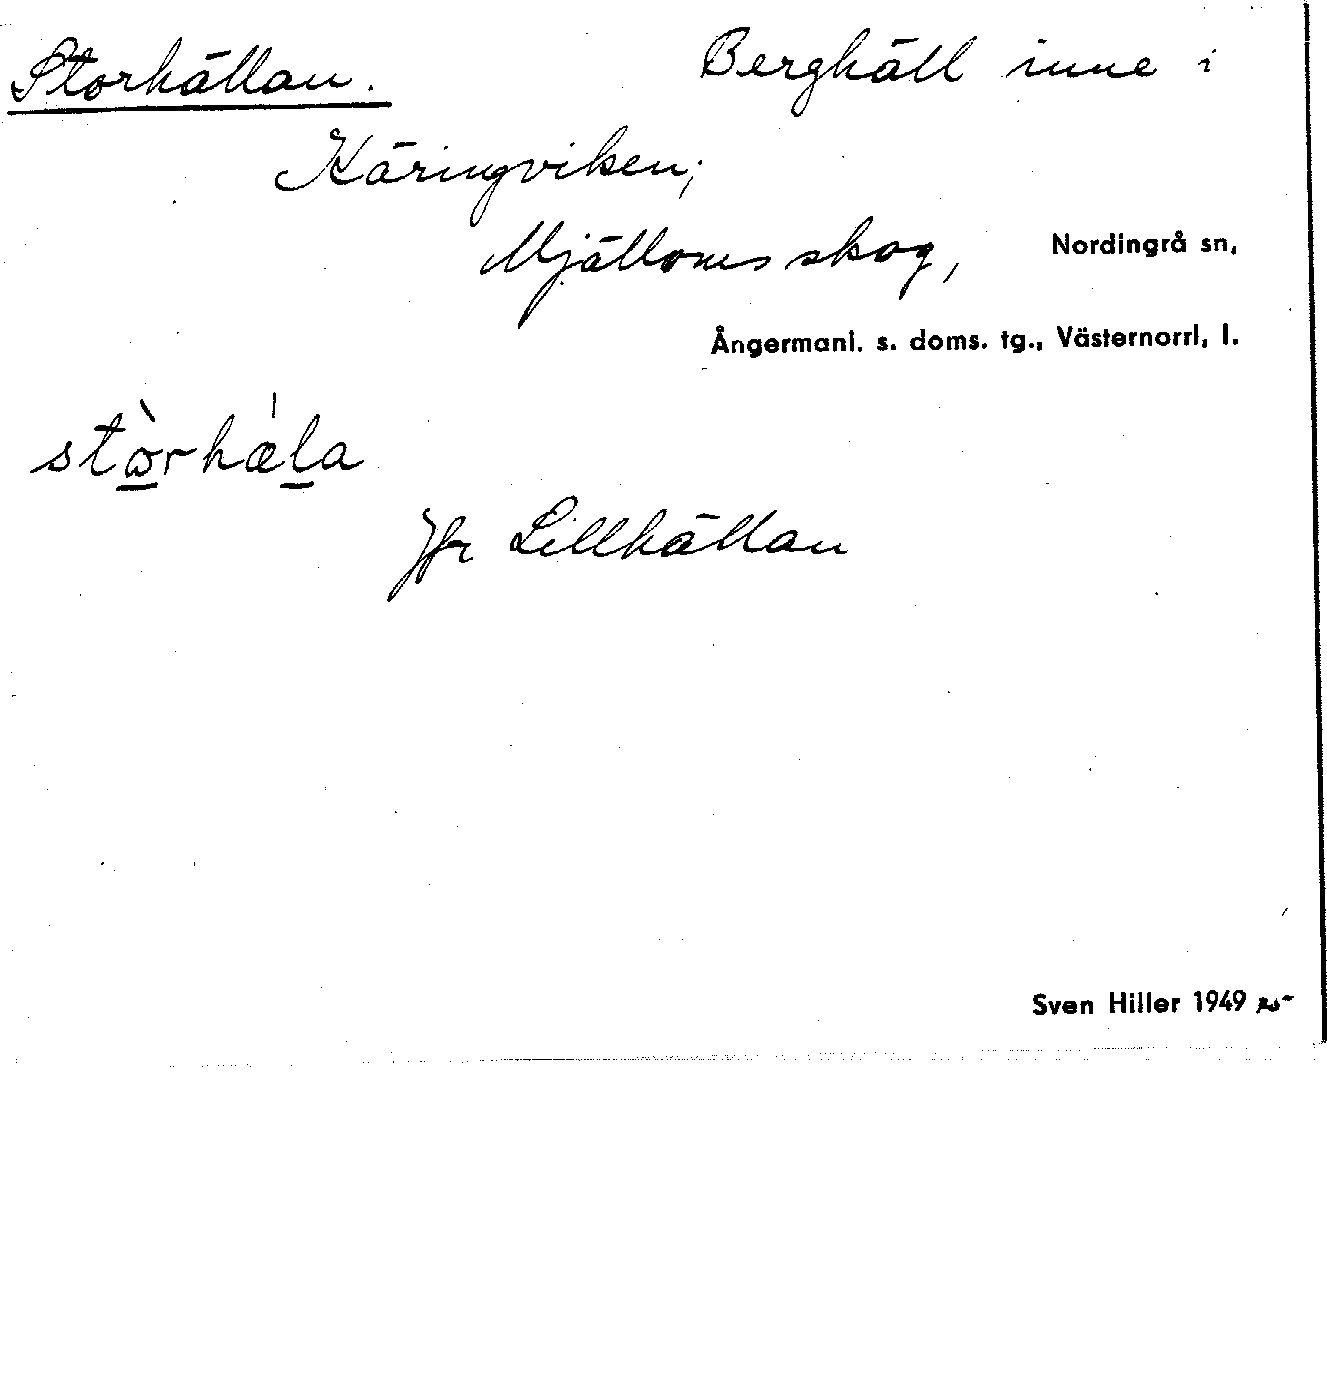 Storhällan. Berghäll inne i
Käringviken;
Mjälloms skog, Nordingrå sn,
Ångermanl. s. doms. tg., Västernorrl. l.
stòrhæ̍la
Jfr Lillhällan
Sven Hiller 1949